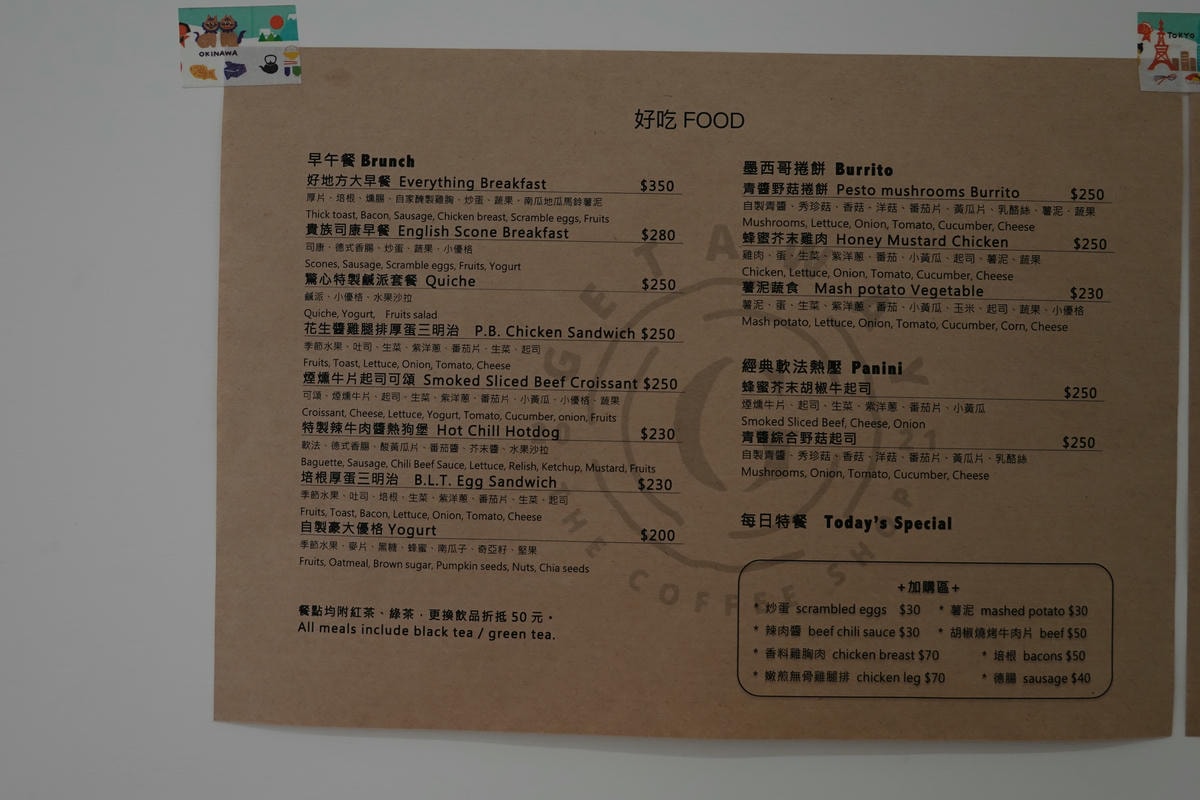 OKINAWA
TOKYO
好吃 FOOD
早午餐 Brunch
好地方大早餐 Everything Breakfast $350
厚片、培根、燻腸、自家醃製雞胸、炒蛋、蔬果、南瓜地瓜馬鈴薯泥
Thick toast, Bacon, Sausage, Chicken breast, Scramble eggs, Fruits
貴族司康早餐 English Scone Breakfast $280
司康、德式香腸、炒蛋、蔬果、小優格
Scones, Sausage, Scramble eggs, Fruits, Yogurt
驚心特製鹹派套餐 Quiche $250
鹹派、小優格、水果沙拉
Quiche, Yogurt, Fruits salad
花生醬雞腿排厚蛋三明治 P.B. Chicken Sandwich $250
季節水果、吐司、生菜、紫洋蔥、番茄片、生菜、起司
Fruits, Toast, Lettuce, Onion, Tomato, Cheese
煙燻牛片起司可頌 Smoked Sliced Beef Croissant $250
可頌、煙燻牛片、起司、生菜、紫洋蔥、番茄片、小黃瓜、小優格、蔬果
Croissant, Cheese, Lettuce, Yogurt, Tomato, Cucumber, onion, Fruits
特製辣牛肉醬熱狗堡 Hot Chill Hotdog $230
軟法、德式香腸、酸黃瓜片、番茄醬、芥末醬、水果沙拉
Baguette, Sausage, Chili Beef Sauce, Lettuce, Relish, Ketchup, Mustard, Fruits
培根厚蛋三明治 B.L.T. Egg Sandwich $230
季節水果、吐司、培根、生菜、紫洋蔥、番茄片、生菜、起司
Fruits, Toast, Bacon, Lettuce, Onion, Tomato, Cheese
自製豪大優格 Yogurt $200
季節水果、麥片、黑糖、蜂蜜、南瓜子、奇亞籽、堅果
Fruits, Oatmeal, Brown sugar, Pumpkin seeds, Nuts, Chia seeds
餐點均附紅茶、綠茶，更換飲品折抵 50 元。
All meals include black tea / green tea.
墨西哥捲餅 Burrito
青醬野菇捲餅 Pesto mushrooms Burrito $250
自製青醬、秀珍菇、香菇、洋菇、番茄片、黃瓜片、乳酪絲、薯泥、蔬果
Mushrooms, Lettuce, Onion, Tomato, Cucumber, Cheese
蜂蜜芥末雞肉 Honey Mustard Chicken $250
雞肉、蛋、生菜、紫洋蔥、番茄、小黃瓜、起司、薯泥、蔬果
Chicken, Lettuce, Onion, Tomato, Cucumber, Cheese
薯泥蔬食 Mash potato Vegetable $230
薯泥、蛋、生菜、紫洋蔥、番茄、小黃瓜、玉米、起司、蔬果、小優格
Mash potato, Lettuce, Onion, Tomato, Cucumber, Corn, Cheese
經典軟法熱壓 Panini
蜂蜜芥末胡椒牛起司 $250
煙燻牛片、起司、生菜、紫洋蔥、番茄片、小黃瓜
Smoked Sliced Beef, Cheese, Onion
青醬綜合野菇起司 $250
自製青醬、秀珍菇、香菇、洋菇、番茄片、黃瓜片、乳酪絲
Mushrooms, Onion, Tomato, Cucumber, Cheese
每日特餐 Today's Special
+加購區+
* 炒蛋 scrambled eggs $30 * 薯泥 mashed potato $30
* 辣肉醬 beef chili sauce $30 * 胡椒燒烤牛肉片 beef $50
* 香料雞胸肉 chicken breast $70 * 培根 bacons $50
* 嫩煎無骨雞腿排 chicken leg $70 * 德腸 sausage $40
THE COFFEE SHOP
21